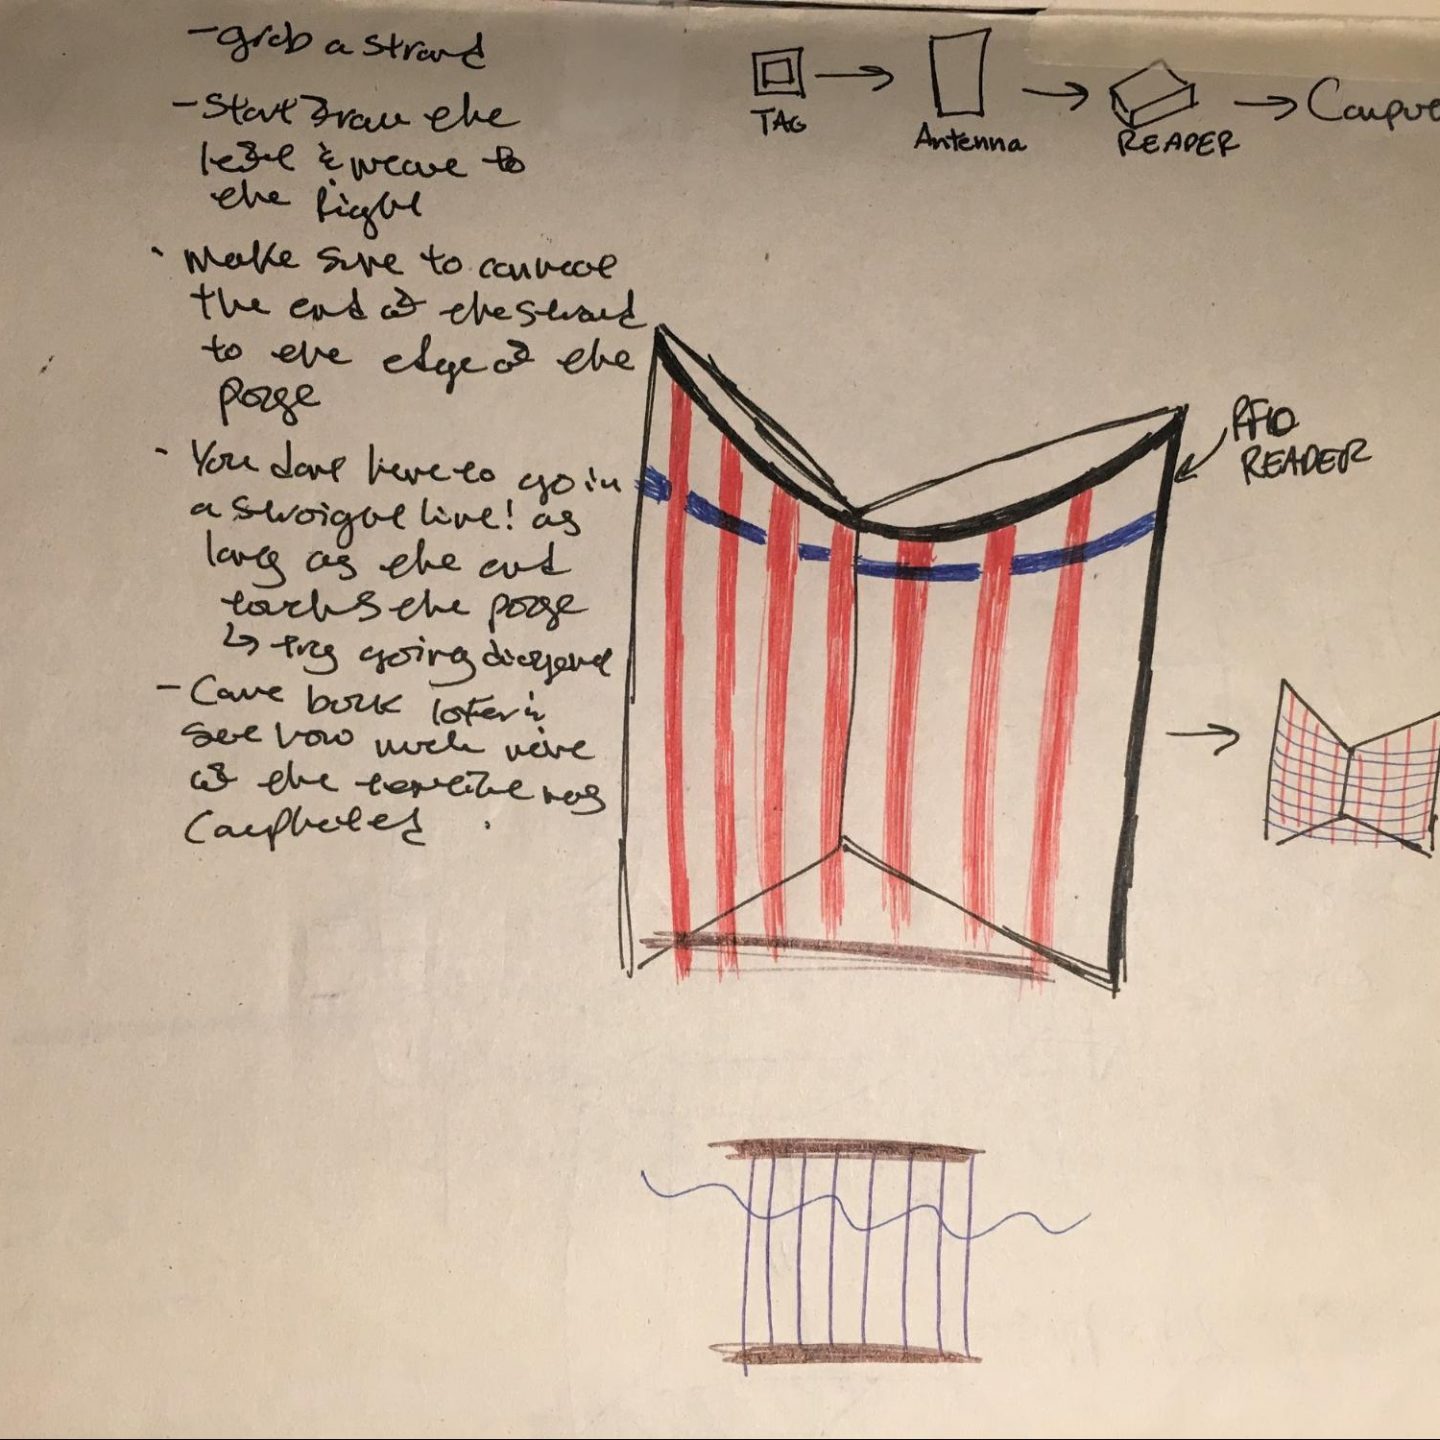 - grab a strand
- Start from the
left & weave to
the right
• Make sure to connect
the end of the strand
to the edge of the
page
• You dont have to go in
a straight line! as
long as the end
touches the page
↳ try going diagonal
- Come back later &
see how much more
of the textile was
Completed
TAG → Antenna → READER → Compute
RFID
READER